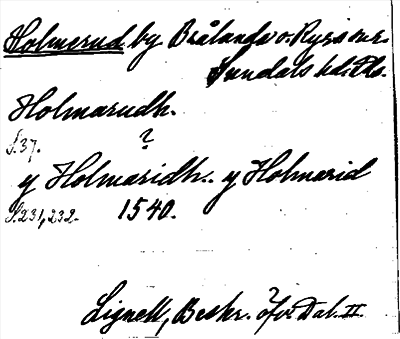 Holmerud by Brålanda o. Ryrs snr.
Sundals hd. Äls.
Holmarudh.
S. 37.
?
y Holmaridh. y Holmarid
S. 231, 232. 1540.
Lignell, Beskr. öfver Dal. II